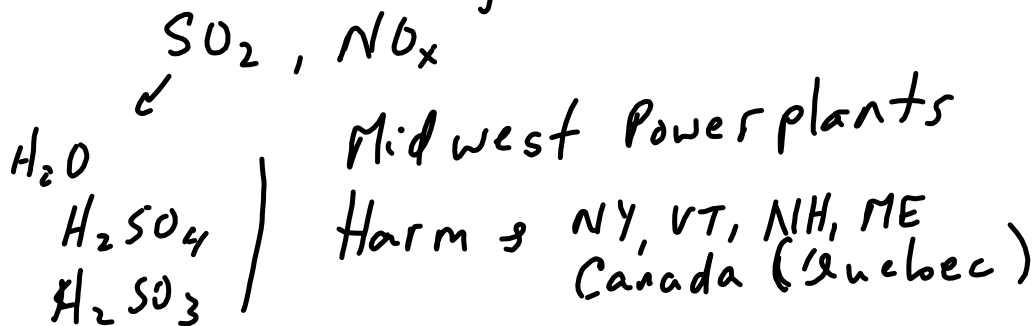 SO₂, NOₓ
H₂O
H₂SO₄
H₂SO₃
Midwest Powerplants
Harms NY, VT, NH, ME
Canada (Quebec)